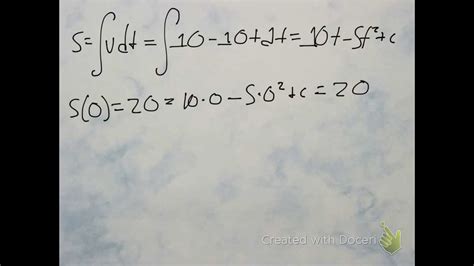 S=∫vdt=∫10-10tdt=10t-5t²+c
S(0)=20=10·0-5·0²+c=20
Created with Doceri